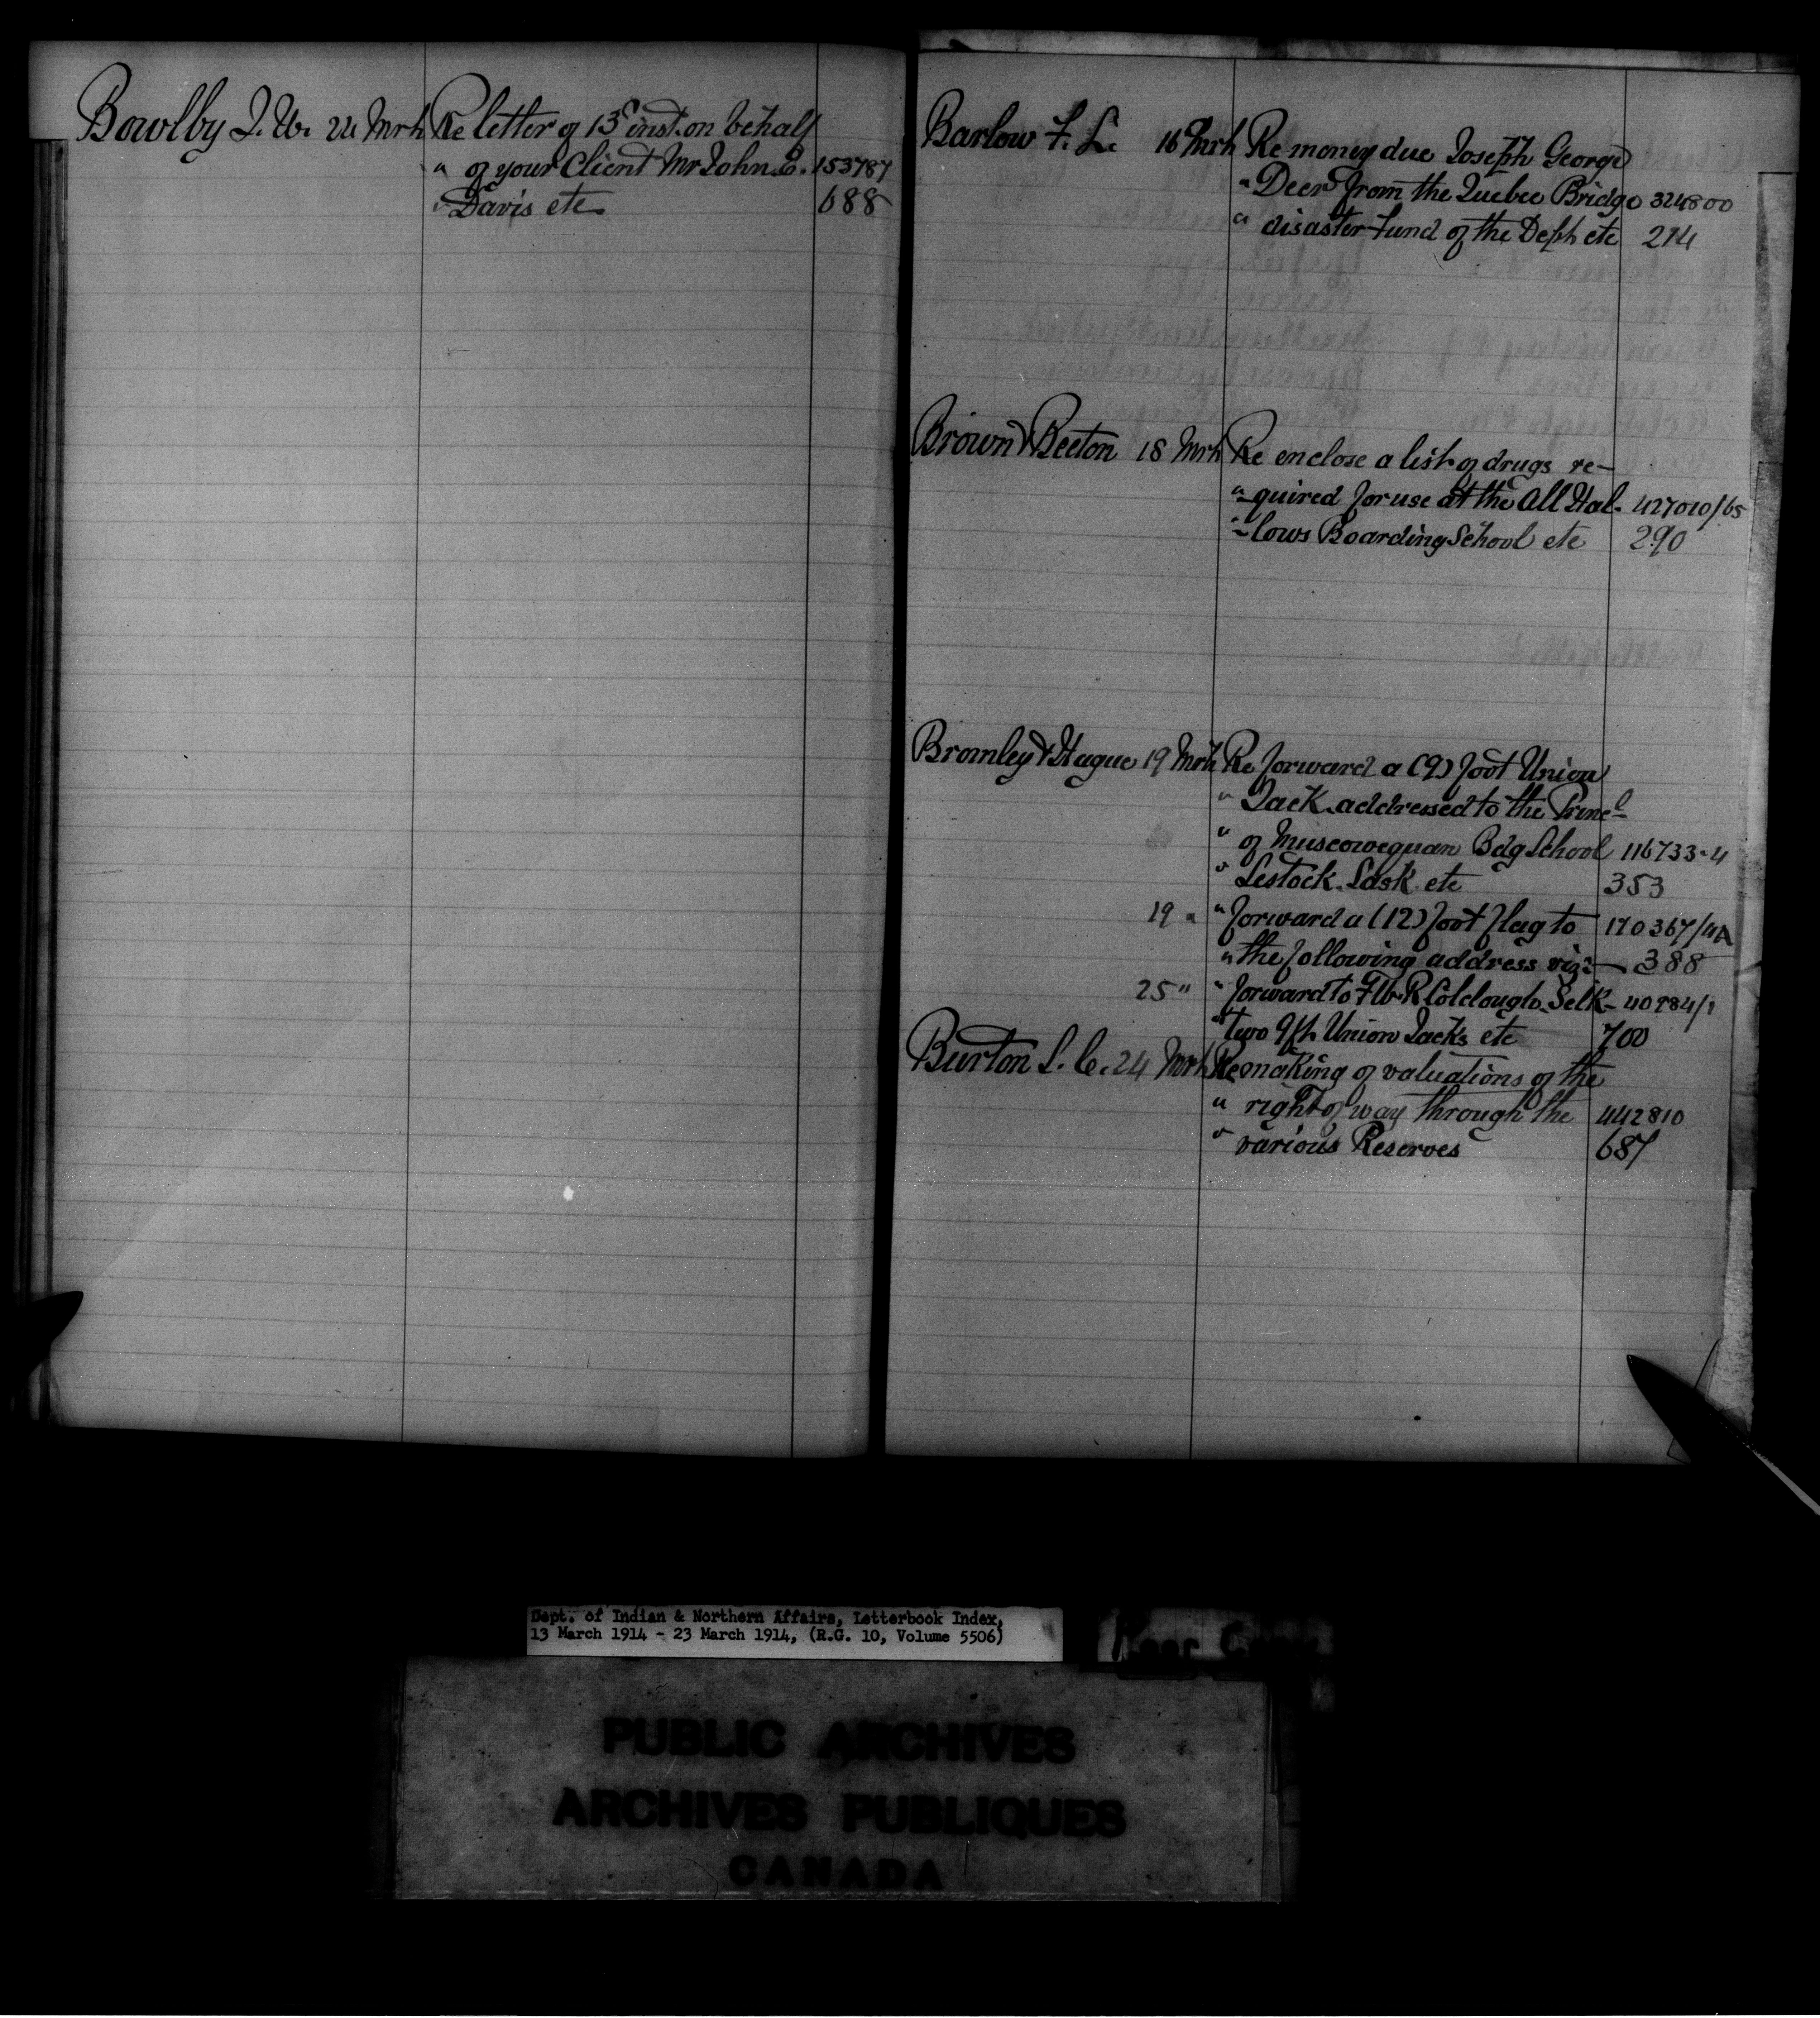 Bowlby J. W. 24 Mrh Re letter of 13th inst. on behalf
" of your Client Mr John E. 153787
" Davis etc 688
Barlow F. L. 16 Mrh Re money due Joseph George
" Deer from the Quebec Bridge 324800
" disaster Fund of the Dept etc 214
Brown & Beeton 18 Mrh Re enclose a list of drugs re-
" quired for use at the All Hal- 427010/65
" lows Boarding School etc 290
Bromley & Hague 19 Mrh Re forward a (9) foot Union
" Jack addressed to the Princl
" of Muscowequan Bdg School 116733-4
" Lestock Sask etc 353
19 " " forward a (12) foot flag to 170367/4A
" the following address viz:- 388
25 " " forward to F W R Colclough Selk-
" two 9 ft Union Jacks etc 700
Burton S. C. 24 Mrh Re making of valuations of the
" right of way through the 442810
" various Reserves 687
Dept. of Indian & Northern Affairs, Letterbook Index,
13 March 1914 - 23 March 1914, (R.G. 10, Volume 5506)
PUBLIC ARCHIVES
ARCHIVES PUBLIQUES
CANADA